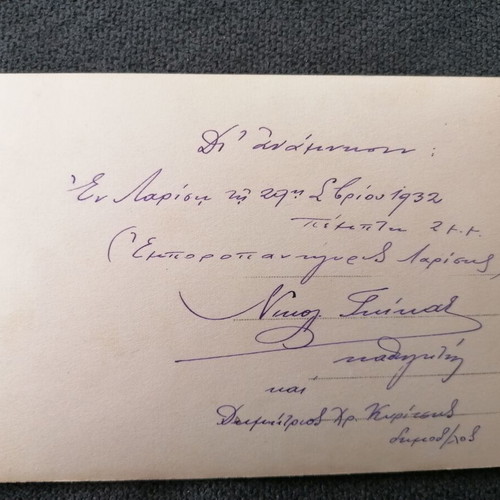 Δι' ἀνάμνησιν :
Ἐν Λαρίσῃ τῇ 29ῃ Σ/βρίου 1932
Πέμπτη 2 μ.μ.
(Ἐμποροπανήγυρις Λαρίσης)
Νικολ. Γκίκας
καθηγητής
καὶ
Δημήτριος Χρ. Κυρίτσης
δημοδ/λος